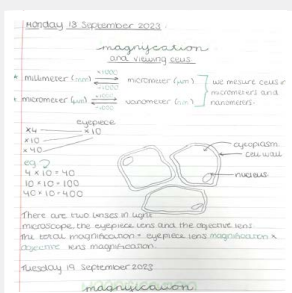 Monday 18 September 2023
magnification
and viewing cells
* millimeter (mm) ×1000 ÷1000 micrometer (μm) we mesure cells in
* micrometer (μm) ×1000 ÷1000 nanometer (nm) micrometers and
nanometers.
eyepiece
×4 ×10
×10
×40
eg
4 × 10 = 40
10 × 10 = 100
40 × 10 = 400
cytoplasm
cell wall
nucleus
There are two lenses in light
microscope, the eyepiece lens and the objective lens
the total magnification = eyepiece lens magnification ×
objective lens magnification.
Tuesday 19 September 2023
magnification